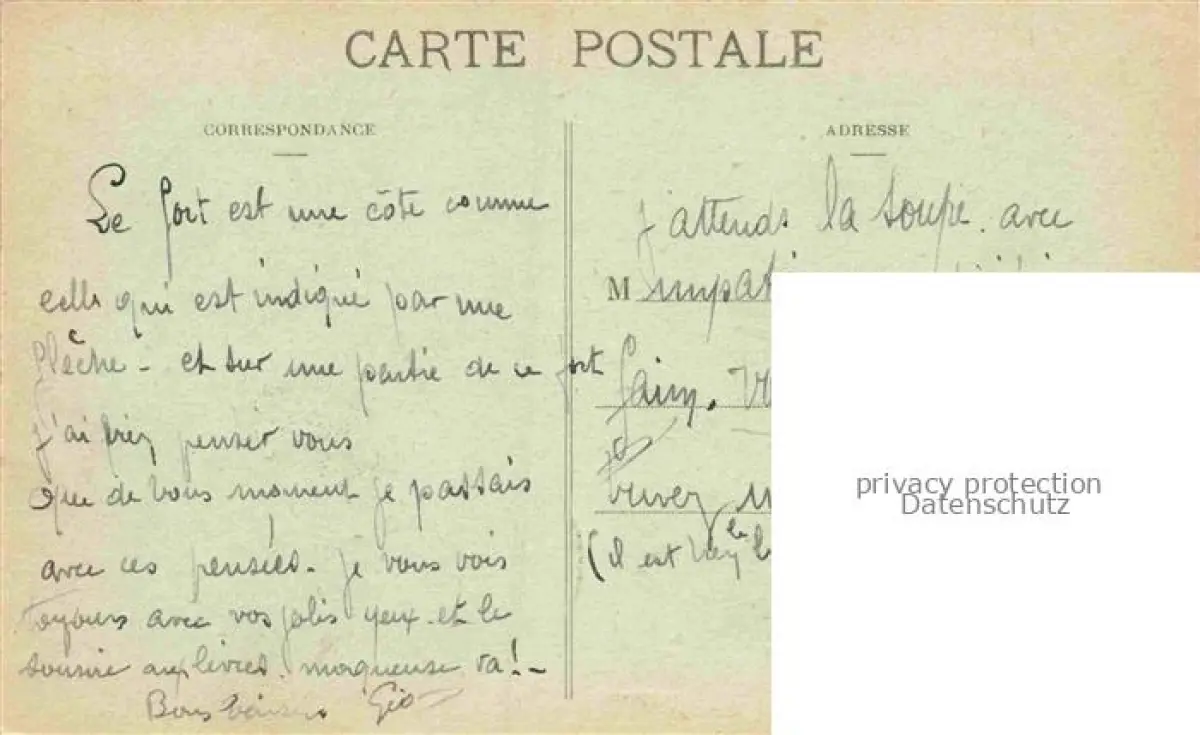 CARTE POSTALE
CORRESPONDANCE
Le fort est une côte comme
celle qui est indiqué par une
flèche - et sur une partie de ce fort
j'ai penser vous
Que de bons moment je passais
avec ces pensées. je vous vois
toujours avec vos jolis yeux et le
sourire aux lèvres. moqueuse va! -
Bons baisers Gio
ADRESSE
j'attends la soupe. avec
M
faim.
venez
(il est
privacy protection
Datenschutz